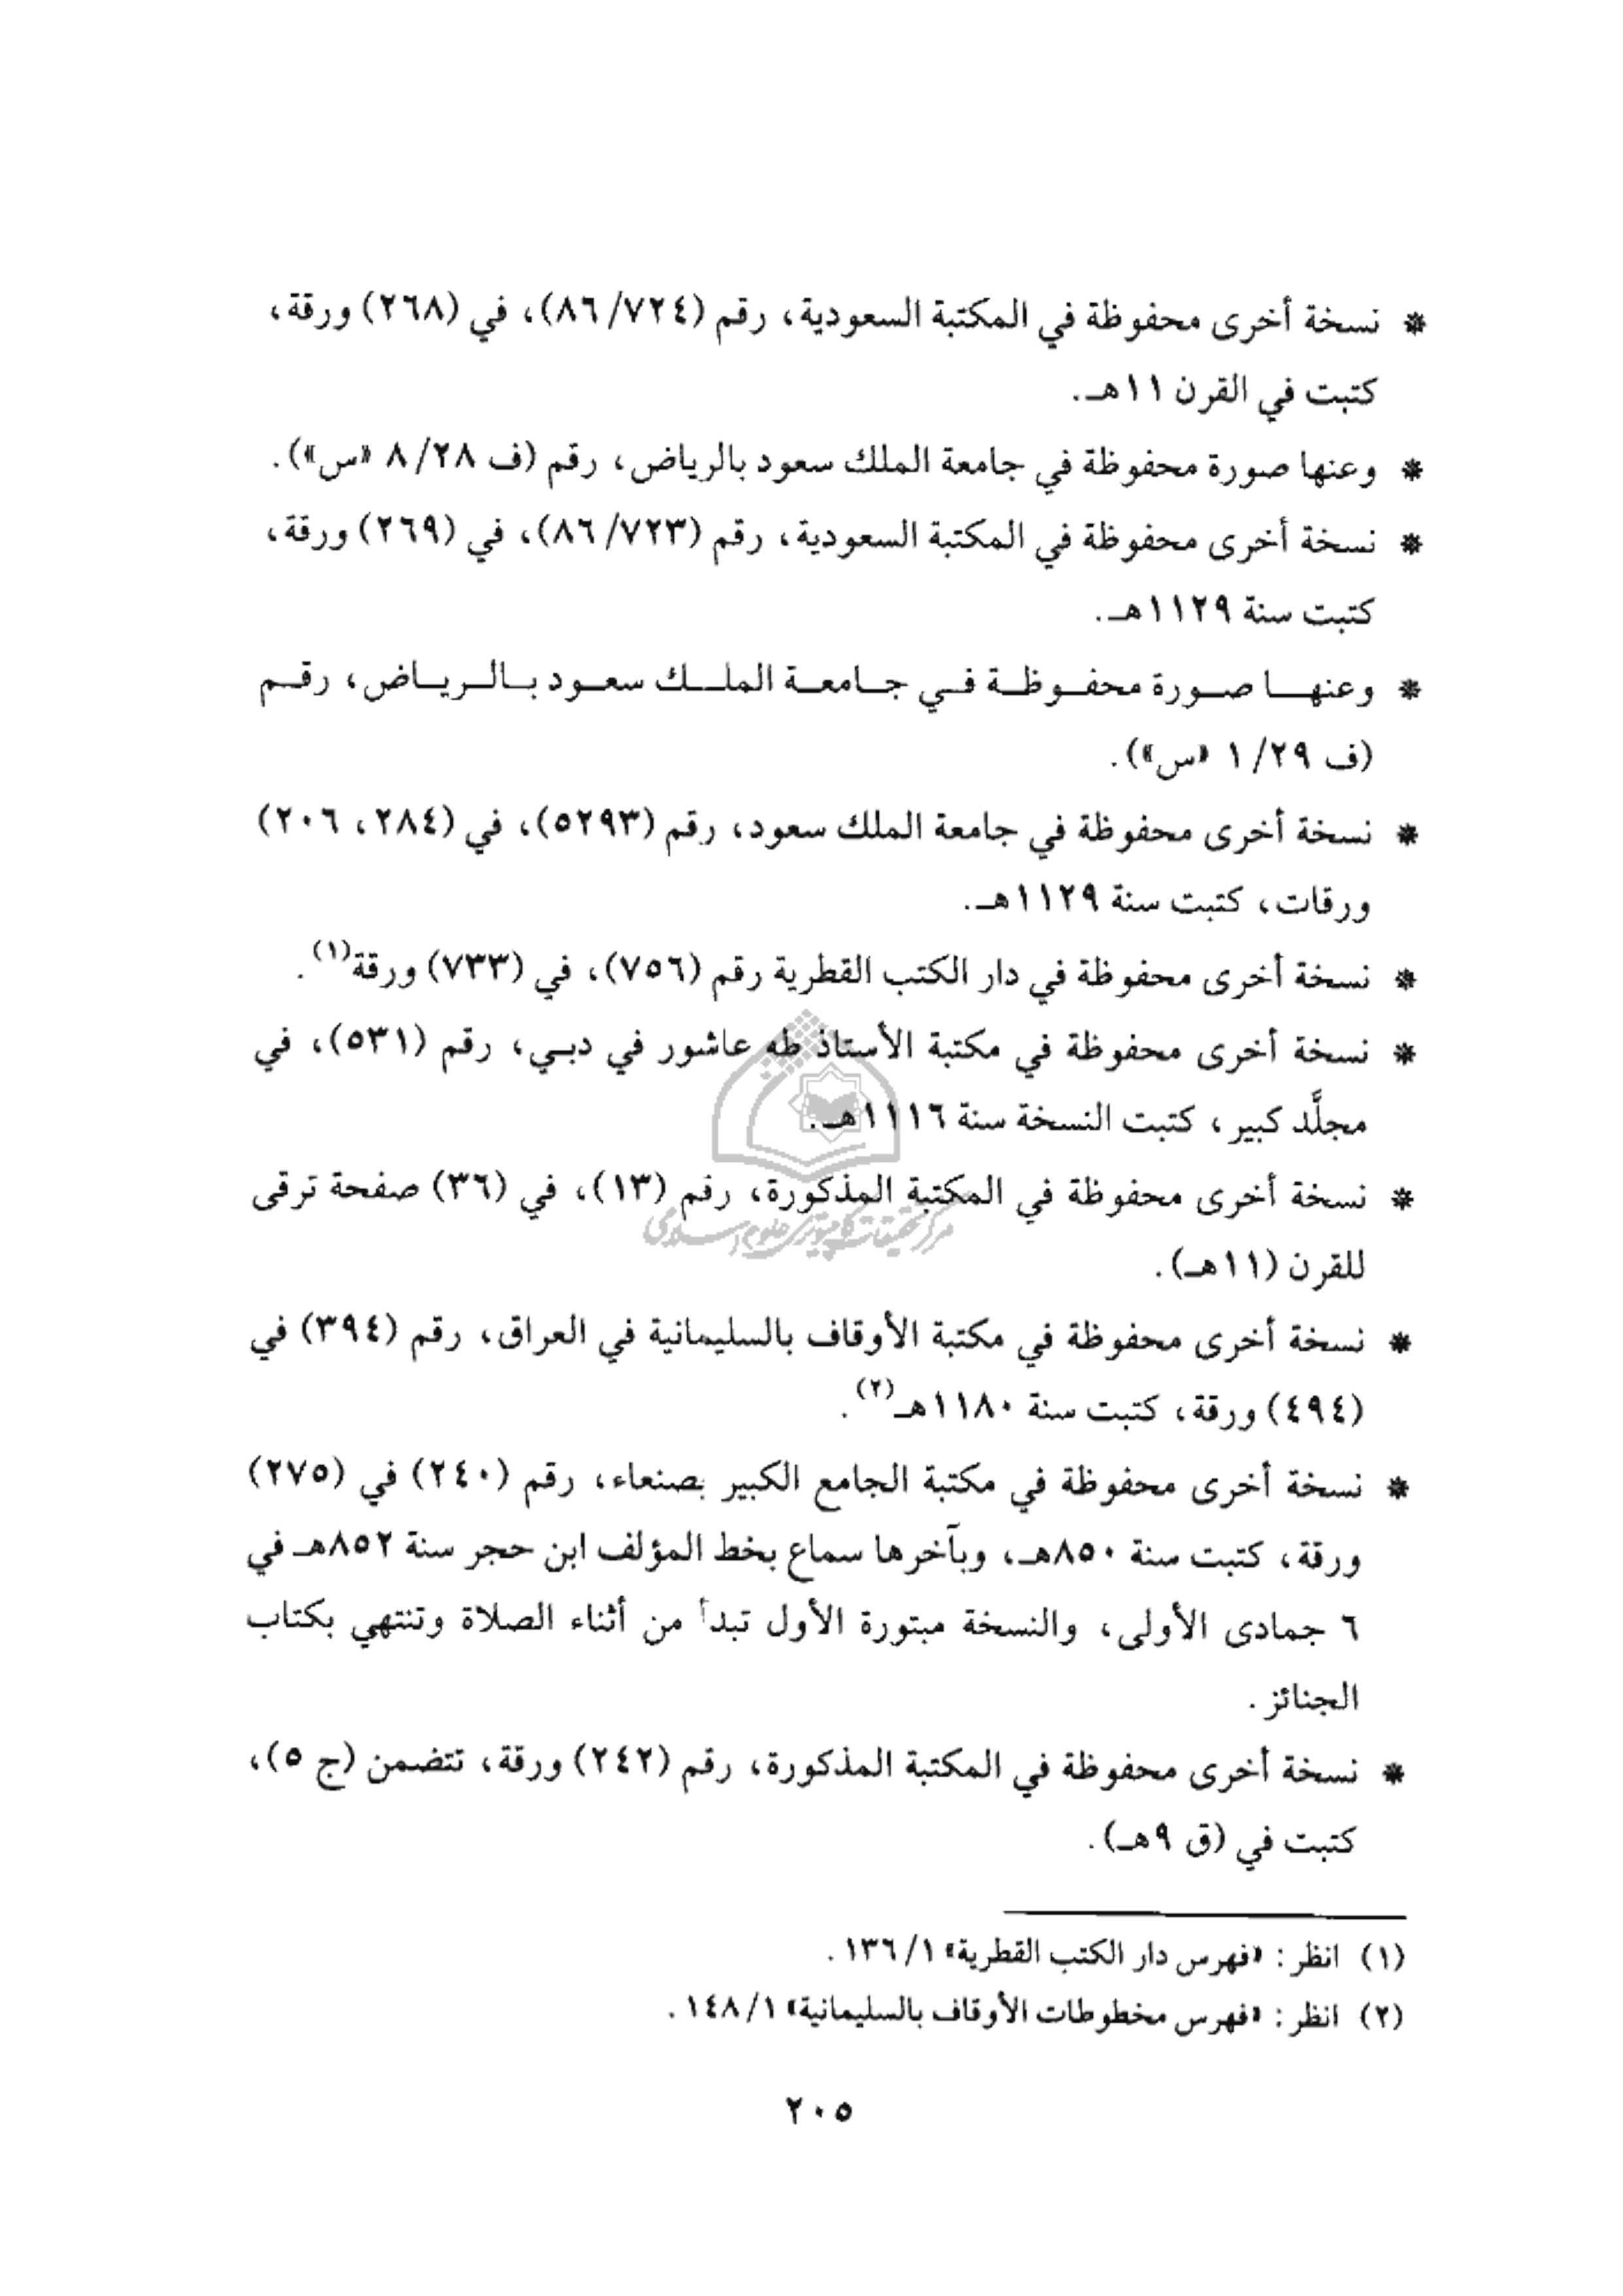 * نسخة أخرى محفوظة في المكتبة السعودية، رقم (٨٦/٧٢٤)، في (٢٦٨) ورقة،
كتبت في القرن ١١هـ.
* وعنها صورة محفوظة في جامعة الملك سعود بالرياض، رقم (ف ٨/٢٨ «س»).
* نسخة أخرى محفوظة في المكتبة السعودية، رقم (٨٦/٧٢٣)، في (٢٦٩) ورقة،
كتبت سنة ١١٢٩هـ.
* وعنهـا صـورة محفـوظـة فـي جـامعـة الملـك سعـود بـالـريـاض، رقـم
(ف ١/٢٩ «س»).
* نسخة أخرى محفوظة في جامعة الملك سعود، رقم (٥٢٩٣)، في (٢٨٤، ٢٠٦)
ورقات، كتبت سنة ١١٢٩هـ.
* نسخة أخرى محفوظة في دار الكتب القطرية رقم (٧٥٦)، في (٧٣٣) ورقة(١).
* نسخة أخرى محفوظة في مكتبة الأستاذ طه عاشور في دبـي، رقم (٥٣١)، في
مجلَّد كبير، كتبت النسخة سنة ١١١٦هـ.
* نسخة أخرى محفوظة في المكتبة المذكورة، رقم (١٣)، في (٣٦) صفحة ترقى
للقرن (١١هـ).
مركز تحقيقات كامپيوترى علوم اسلامى
* نسخة أخرى محفوظة في مكتبة الأوقاف بالسليمانية في العراق، رقم (٣٩٤) في
(٤٩٤) ورقة، كتبت سنة ١١٨٠هـ(٢).
* نسخة أخرى محفوظة في مكتبة الجامع الكبير بصنعاء، رقم (٢٤٠) في (٢٧٥)
ورقة، كتبت سنة ٨٥٠هـ، وبآخرها سماع بخط المؤلف ابن حجر سنة ٨٥٢هـ في
٦ جمادى الأولى، والنسخة مبتورة الأول تبدأ من أثناء الصلاة وتنتهي بكتاب
الجنائز.
* نسخة أخرى محفوظة في المكتبة المذكورة، رقم (٢٤٢) ورقة، تتضمن (ج ٥)،
كتبت في (ق ٩هـ).
(١) انظر: «فهرس دار الكتب القطرية» ١/ ١٣٦.
(٢) انظر: «فهرس مخطوطات الأوقاف بالسليمانية» ١/ ١٤٨.
٢٠٥